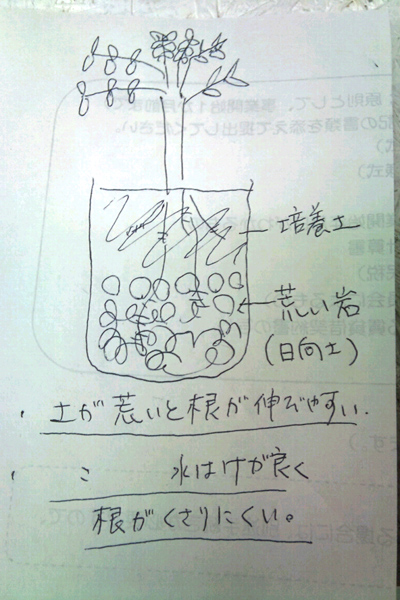 培養土
荒い岩
(日向土)
・土が荒いと根が伸びやすい.
・ 〃 水はけが良く
根がくさりにくい。